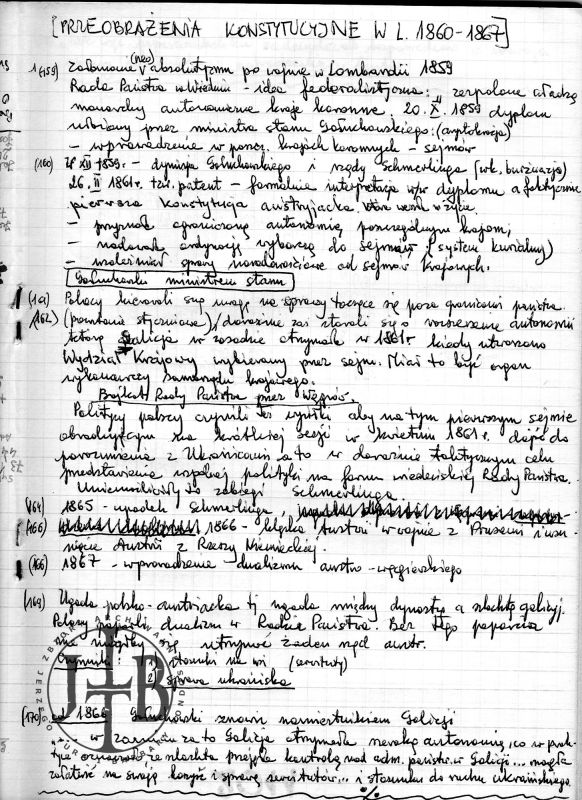 [PRZEOBRAŻENIA KONSTYTUCYJNE W L. 1860-1867]
1(159) Załamanie (neo) absolutyzmu po wojnie w Lombardii 1859
Rada Państwa w Wiedniu - idea federalistyczna: zespolone władzą
monarchy autonomiczne kraje koronne. 20. X. 1859 dyplom
wydany przez ministra stanu Gołuchowskiego: (arystokracja)
- wprowadzenie w poszcz. krajach koronnych - sejmów
(160) XII 1859. - dymisja Gołuchowskiego i rządy Schmerlinga (burżuazja)
26. II 1861 r. tzw. patent - formalnie interpretacja dyplomu a faktycznie
pierwsza konstytucja austryjacka. Która weszła w życie.
- przyznała ograniczoną autonomię poszczególnym krajom,
- nadawała ordynację wyborczą do sejmów (system kurialny)
- uzależniał sprawy narodowościowe od sejmów krajowych.
Gołuchowski ministrem stanu
(161) Polacy kierowali swą uwagę na sprawy toczące się poza granicami państwa
(162) (powstanie styczniowe), doraźnie zaś starali się o rozszerzenie autonomii
którą Galicja w zasadzie otrzymała w 1861 r. kiedy utworzono
Wydział Krajowy wybierany przez sejm. Miał to być organ
wykonawczy samorządu krajowego.
Bojkot Rady Państwa przez Węgrów.
Politycy polscy czynili też wysiłki aby na tym pierwszym sejmie
obradującym na krótkiej sesji w kwietniu 1861 r. dojść do
porozumienia z Ukraińcami a to w doraźnie taktycznym celu
przedstawienia wspólnej polityki na forum wiedeńskiej Rady Państwa.
Uniemożliwiły to zabiegi Schmerlinga.
(164) 1865 - upadek Schmerlinga,
(166) 1866 - klęska Austrii w wojnie z Prusami i usunięcie
Austrii z Rzeszy Niemieckiej.
(166) 1867 - wprowadzenie dualizmu austro-węgierskiego
(169) Ugoda polsko-austriacka tj. ugoda między dynastią a szlachtą galicyj.
Polacy poparli dualizm w Radzie Państwa. Bez tego poparcia
nie mógłby się utrzymać żaden rząd austr.
1) stosunki na wsi (serwituty)
2) sprawa ukraińska
(170) od 1866 Gołuchowski znowu namiestnikiem Galicji
- w zamian za to Galicja otrzymała szeroką autonomię, co w prak-
tyce oznaczało że szlachta przejęła kontrolę nad adm. państw. w Galicji... mogła
załatwić na swoją korzyść i sprawę serwitutów... i stosunku do ruchu ukraińskiego
%
JERZEGO TUROWICZA
JTB